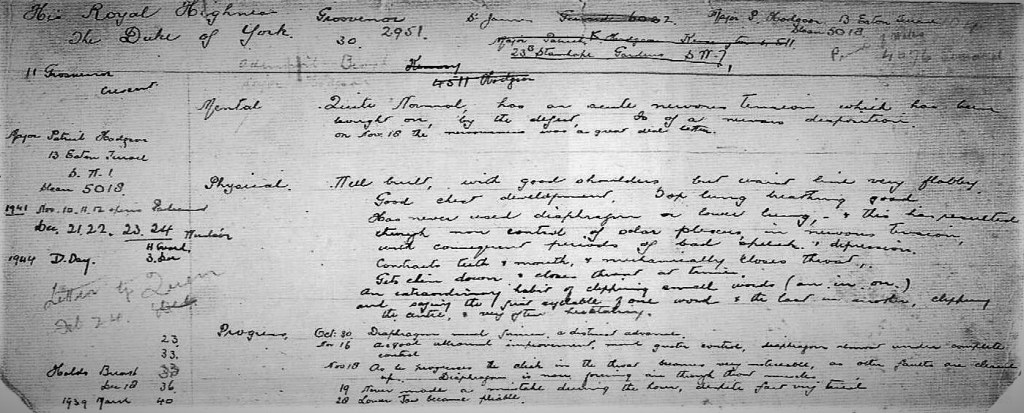 His Royal Highness
The Duke of York.
Grosvenor
2951.
30.
Dr James
Major P. Hodgson 13 Eaton Terrace
Sloane 5018
Major Patrick Hodgson
23B Stanhope Gardens S.W.7,
4511 Hodgson
11 Grosvenor
Crescent
Mental Quite Normal, has an acute nervous tension which has been
brought on, by the defect, Is of a nervous disposition.
on Nov. 18 the nervousness was a great deal better.
Major Patrick Hodgson
13 Eaton Terrace
S.W.1
Sloane 5018
1941 Nov. 10. 11. 12 opening Parliament
Dec. 21, 22. 23. 24 Windsor
1944 D. Day. 3. Dec
Physical. Well built, with good shoulders but waist line very flabby
Good chest development. Top lung breathing good
Has never used diaphragm or lower lung, & this has resulted
through non control of solar plexus, in nervous tension,
with consequent periods of bad speech & depression.
Contracts teeth & mouth, & mechanically closes throat.
Gets chin down & closes throat at times.
An extraordinary habit of clipping small words (an. in. on.)
and saying the first syllable of one word & the last in another, clipping
the centre, & very often hesitating.
Progress,
Oct. 30 Diaphragm much firmer, a distinct advance.
Nov 16 A good all round improvement, much greater control, diaphragm almost under complete
control
Nov 18 As he progresses the click in the throat becomes very noticeable, as other faults are cleared
up. Diaphragm is now forcing air through throat muscles
19 Never made a mistake during the hour, despite fact very tired
28 Lower Jaw became pliable.
Letter by Queen
23
33.
33
Dec 18 36
1939 March 40